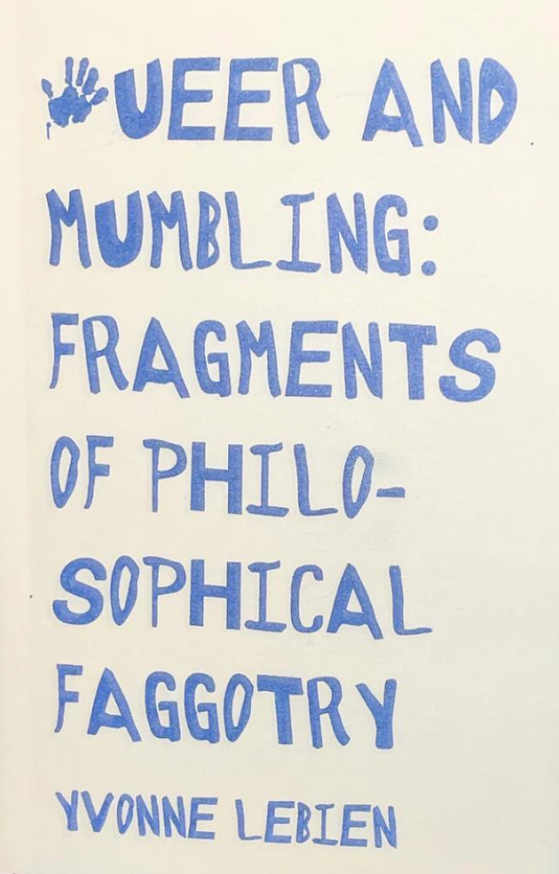 UEER AND
MUMBLING:
FRAGMENTS
OF PHILO-
SOPHICAL
FAGGOTRY
YVONNE LEBIEN